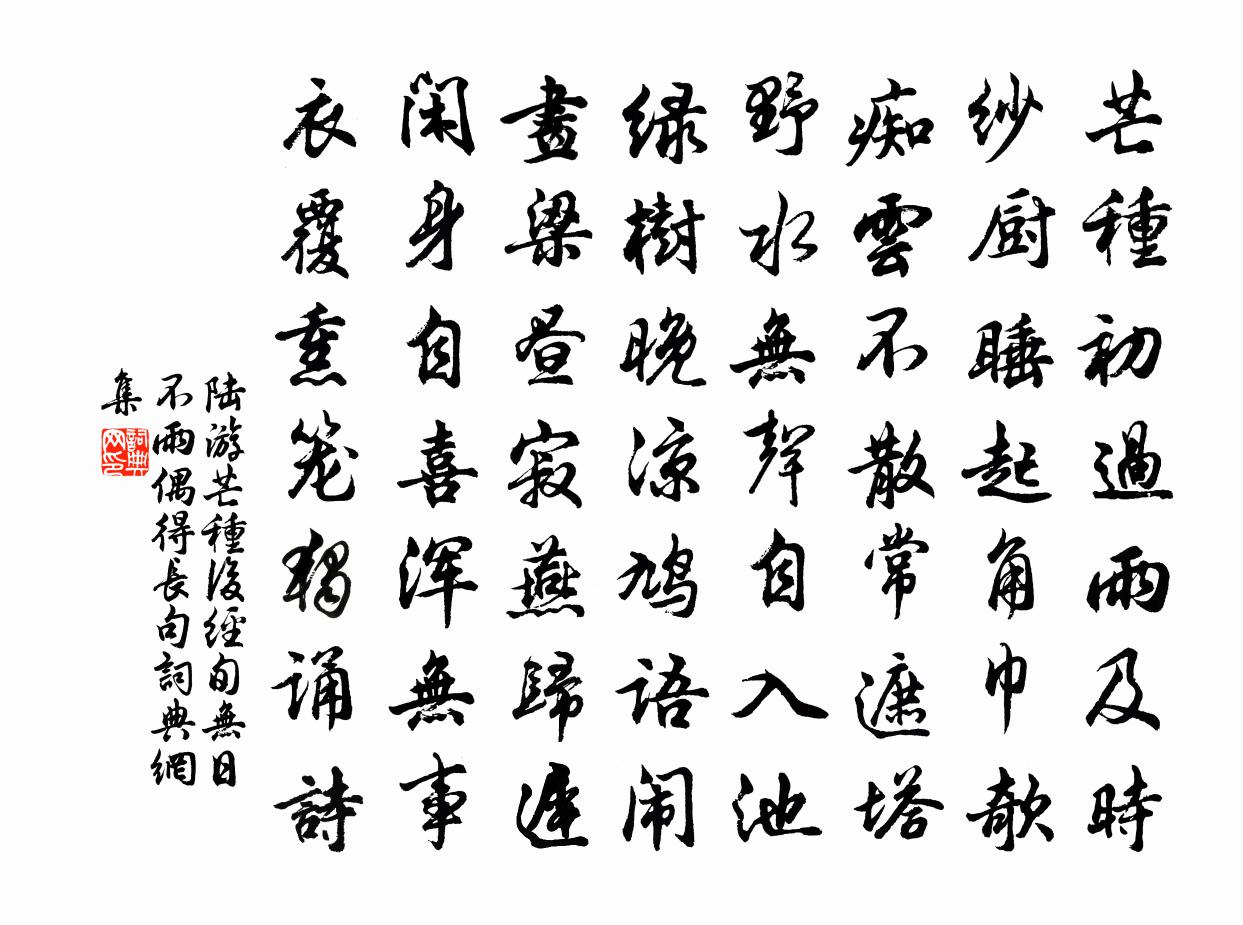 芒種初過雨及時
紗厨睡起角巾欹
痴雲不散常遮塔
野水無聲自入池
绿樹晚凉鳩语闹
畫梁昼寂燕歸遲
闲身自喜浑無事
衣覆熏笼独诵詩
陆游芒種後經旬無日
不雨偶得長句詞典網
集
詞典
网印